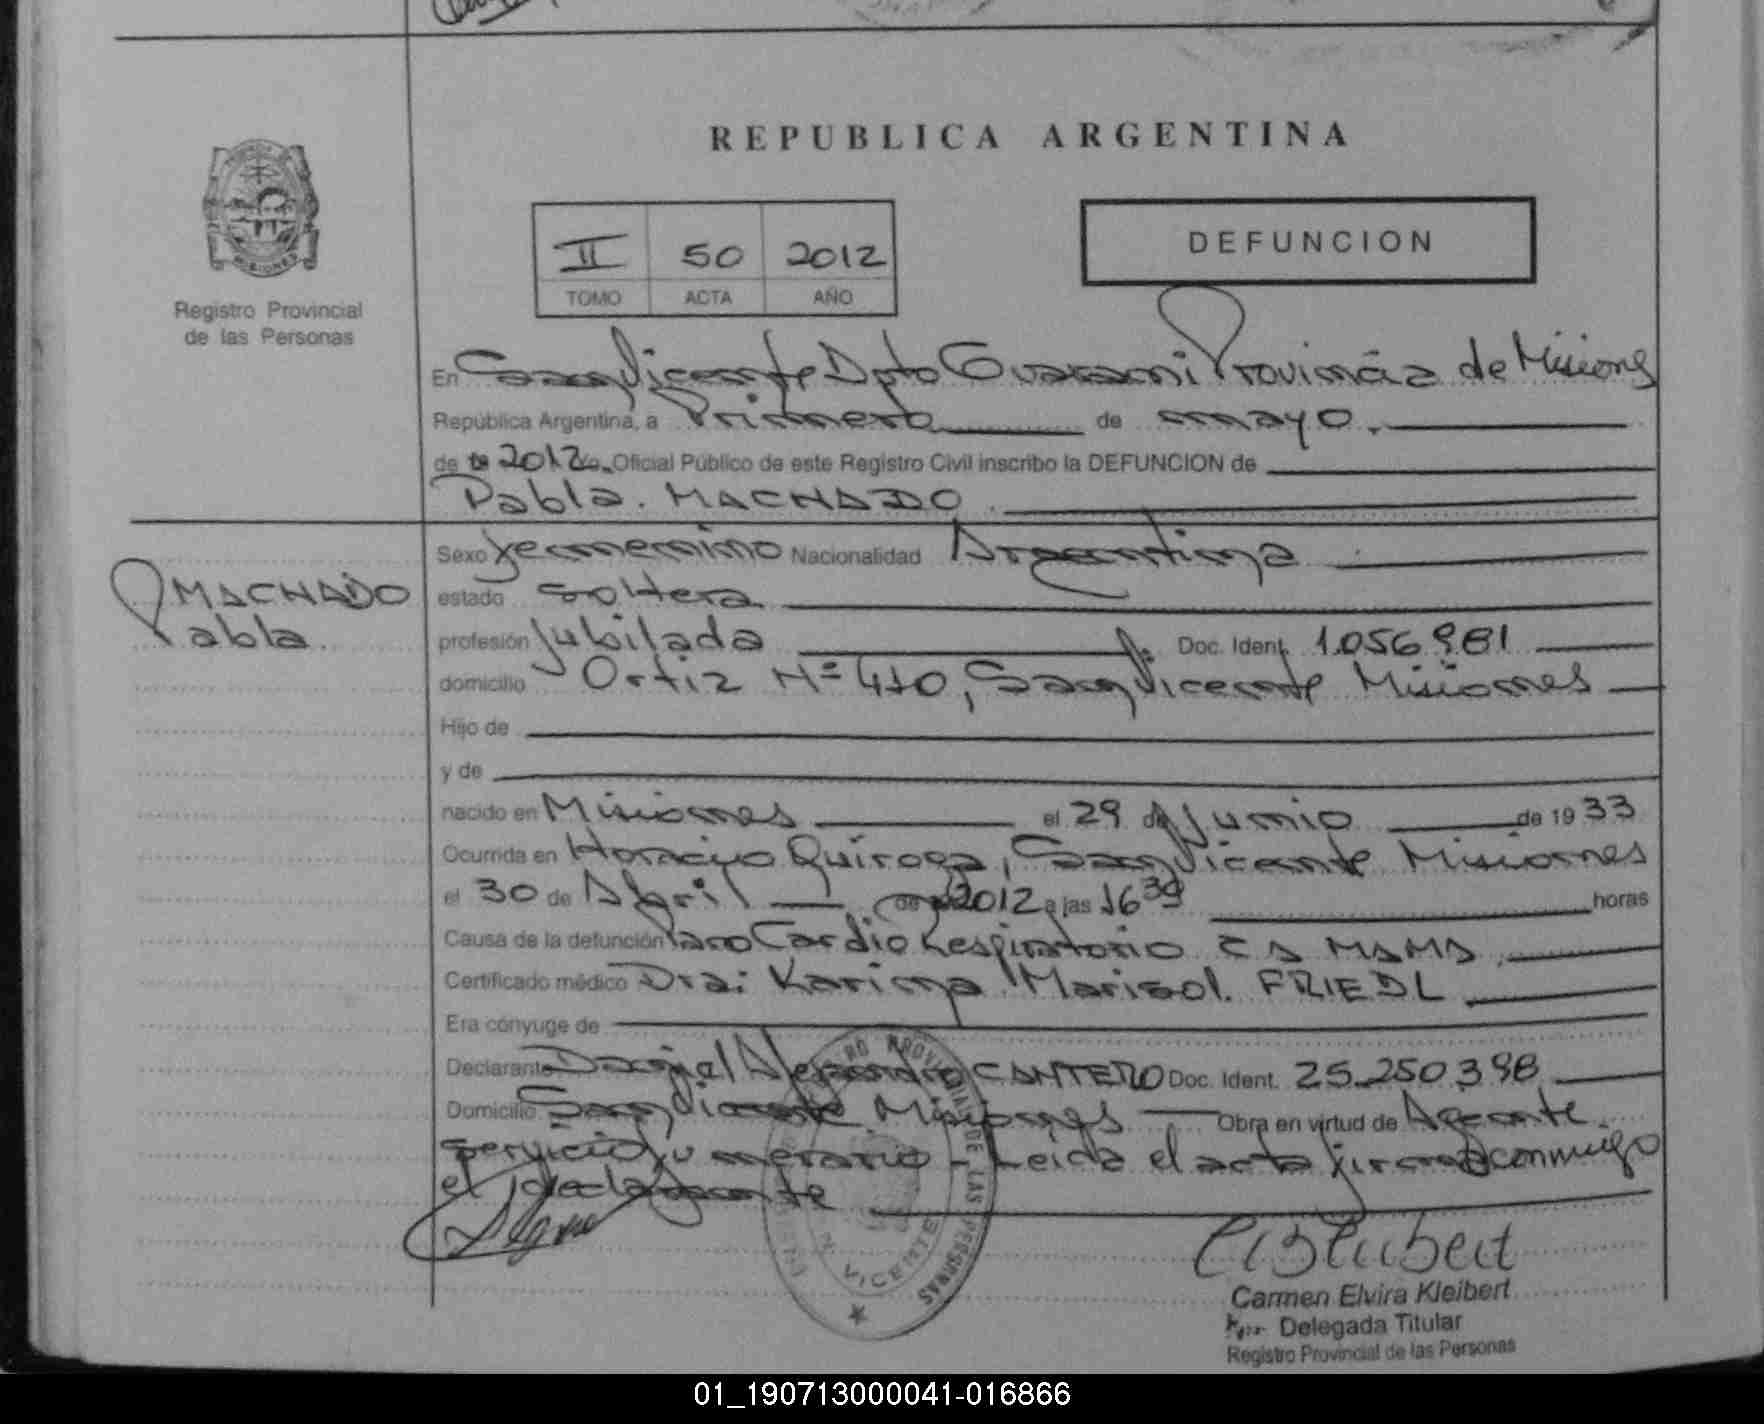 REPUBLICA ARGENTINA
II 50 2012
TOMO ACTA AÑO
DEFUNCION
MISIONES
Registro Provincial
de las Personas
En San Vicente Dpto Guarani Provincia de Misiones
República Argentina, a Primero de mayo.
de 2012 Yo, Oficial Público de este Registro Civil inscribo la DEFUNCION de
Pabla. MACHADO
MACHADO
Pabla
Sexo femenino Nacionalidad Argentina
estado soltera
profesión Jubilada Doc. Ident. 1.056.981
domicilio Ortiz Nº 410, San Vicente Misiones
Hijo de
y de
nacido en Misiones el 29 de Junio de 1933
Ocurrida en Horacio Quiroga, San Vicente Misiones
el 30 de Abril de 2012 a las 16 30 horas
Causa de la defunción Paro Cardio Respiratorio CA MAMA
Certificado médico Dra: Karina Marisol. FRIEDL
Era cónyuge de
Declarante Daniel Alejandro CANTERO Doc. Ident. 25.250.398
Domicilio San Vicente Misiones Obra en virtud de Agente
servicio funerario - Leida el acta firma conmigo
el declarante
REGISTRO PROVINCIAL DE LAS PERSONAS
VICENTE
Carmen Elvira Kleibert
Delegada Titular
Registro Provincial de las Personas
01_190713000041-016866